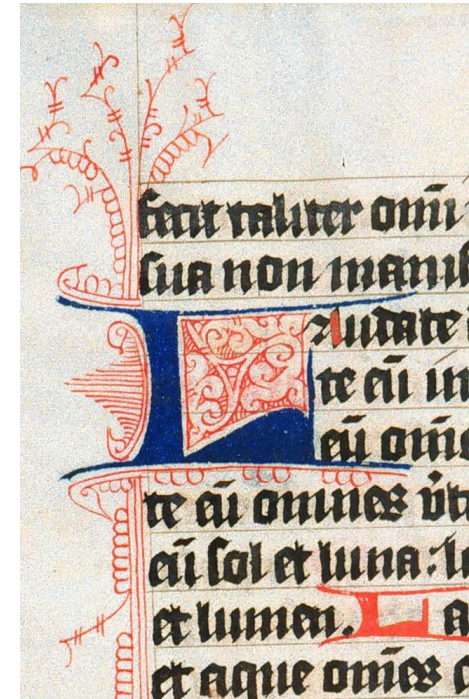 fecit taliter om̅i
sua non manif
LAudate
te eū in
eū om̅e
te eū omnes v̅t
eū sol et luna : l
et lumen. La
et aque om̅es